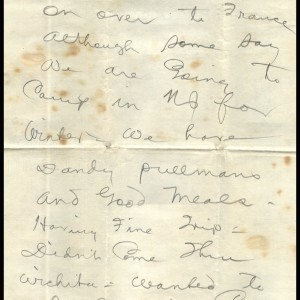 on over to France
Although some say
We are Going to
Camp in NJ for
Winter. We have
Dandy pullmans
and Good Meals -
Having Fine Trip -
Didn't Come Thru
Wichita - wanted to